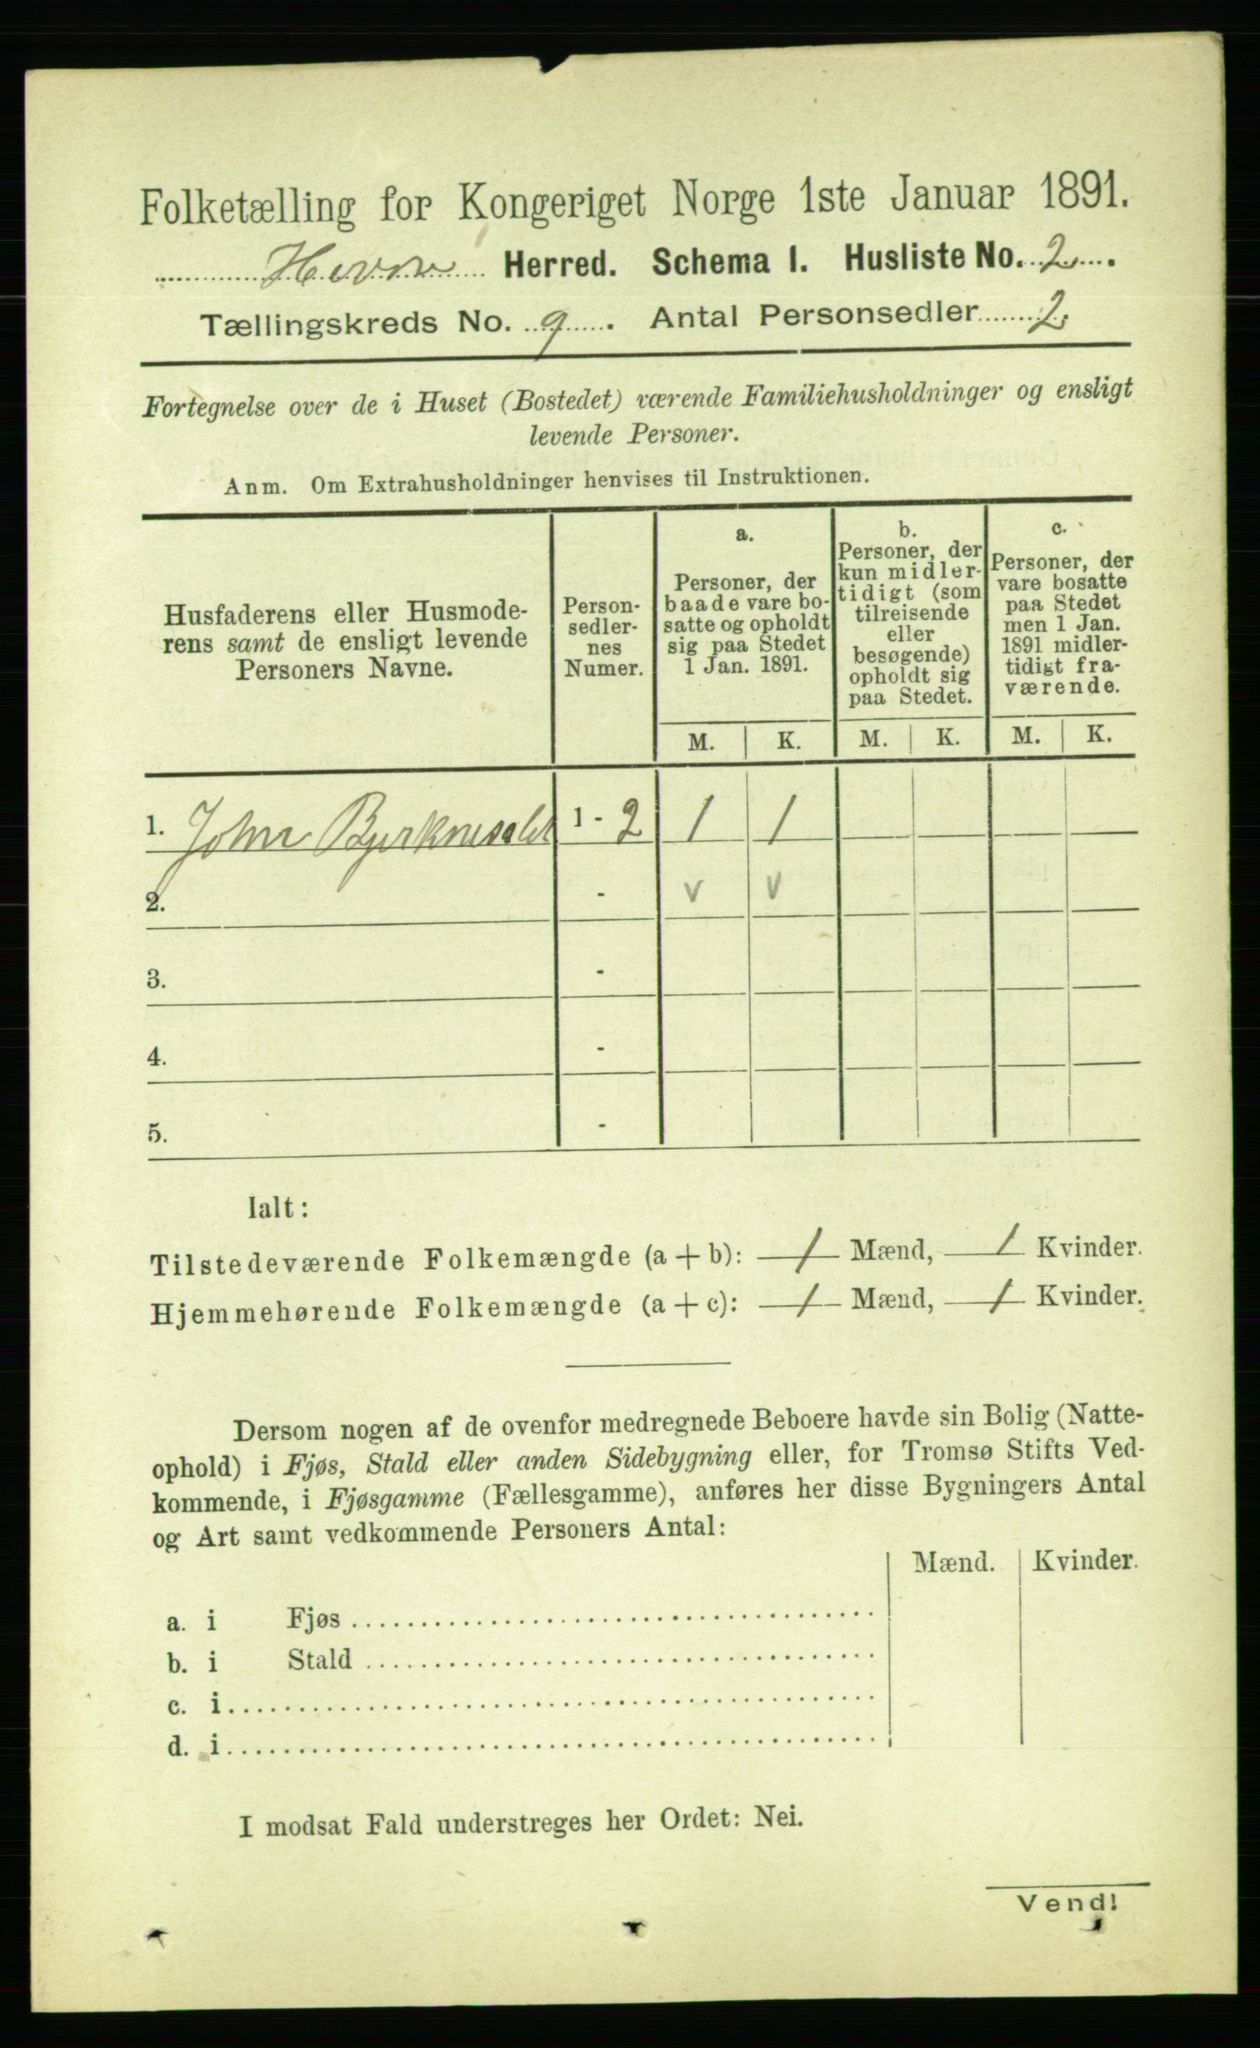 Folketælling for Kongeriget Norge 1ste Januar 1891.
Herred. Schema I. Husliste No. 2.
Tællingskreds No. 9. Antal Personsedler 2.
Fortegnelse over de i Huset (Bostedet) værende Familiehusholdninger og ensligt
levende Personer.
Anm. Om Extrahusholdninger henvises til Instruktionen.
Husfaderens eller Husmode-
rens samt de ensligt levende
Personers Navne.
Person-
sedler-
nes
Numer.
a.
Personer, der
baade vare bo-
satte og opholdt
sig paa Stedet
1 Jan. 1891.
b.
Personer, der
kun midler-
tidigt (som
tilreisende
eller
besøgende)
opholdt sig
paa Stedet.
c.
Personer, der
vare bosatte
paa Stedet
men 1 Jan.
1891 midler-
tidigt fra-
værende.
M. K. M. K. M. K.
1. John 1 - 2 1 1
2. - v v
3. -
4. -
5. -
Ialt:
Tilstedeværende Folkemængde (a + b): 1 Mænd, 1 Kvinder.
Hjemmehørende Folkemængde (a + c): 1 Mænd, 1 Kvinder.
Dersom nogen af de ovenfor medregnede Beboere havde sin Bolig (Natte-
ophold) i Fjøs, Stald eller anden Sidebygning eller, for Tromsø Stifts Ved-
kommende, i Fjøsgamme (Fællesgamme), anføres her disse Bygningers Antal
og Art samt vedkommende Personers Antal:
Mænd. Kvinder.
a. i Fjøs
b. i Stald
c. i
d. i
I modsat Fald understreges her Ordet: Nei.
Vend!